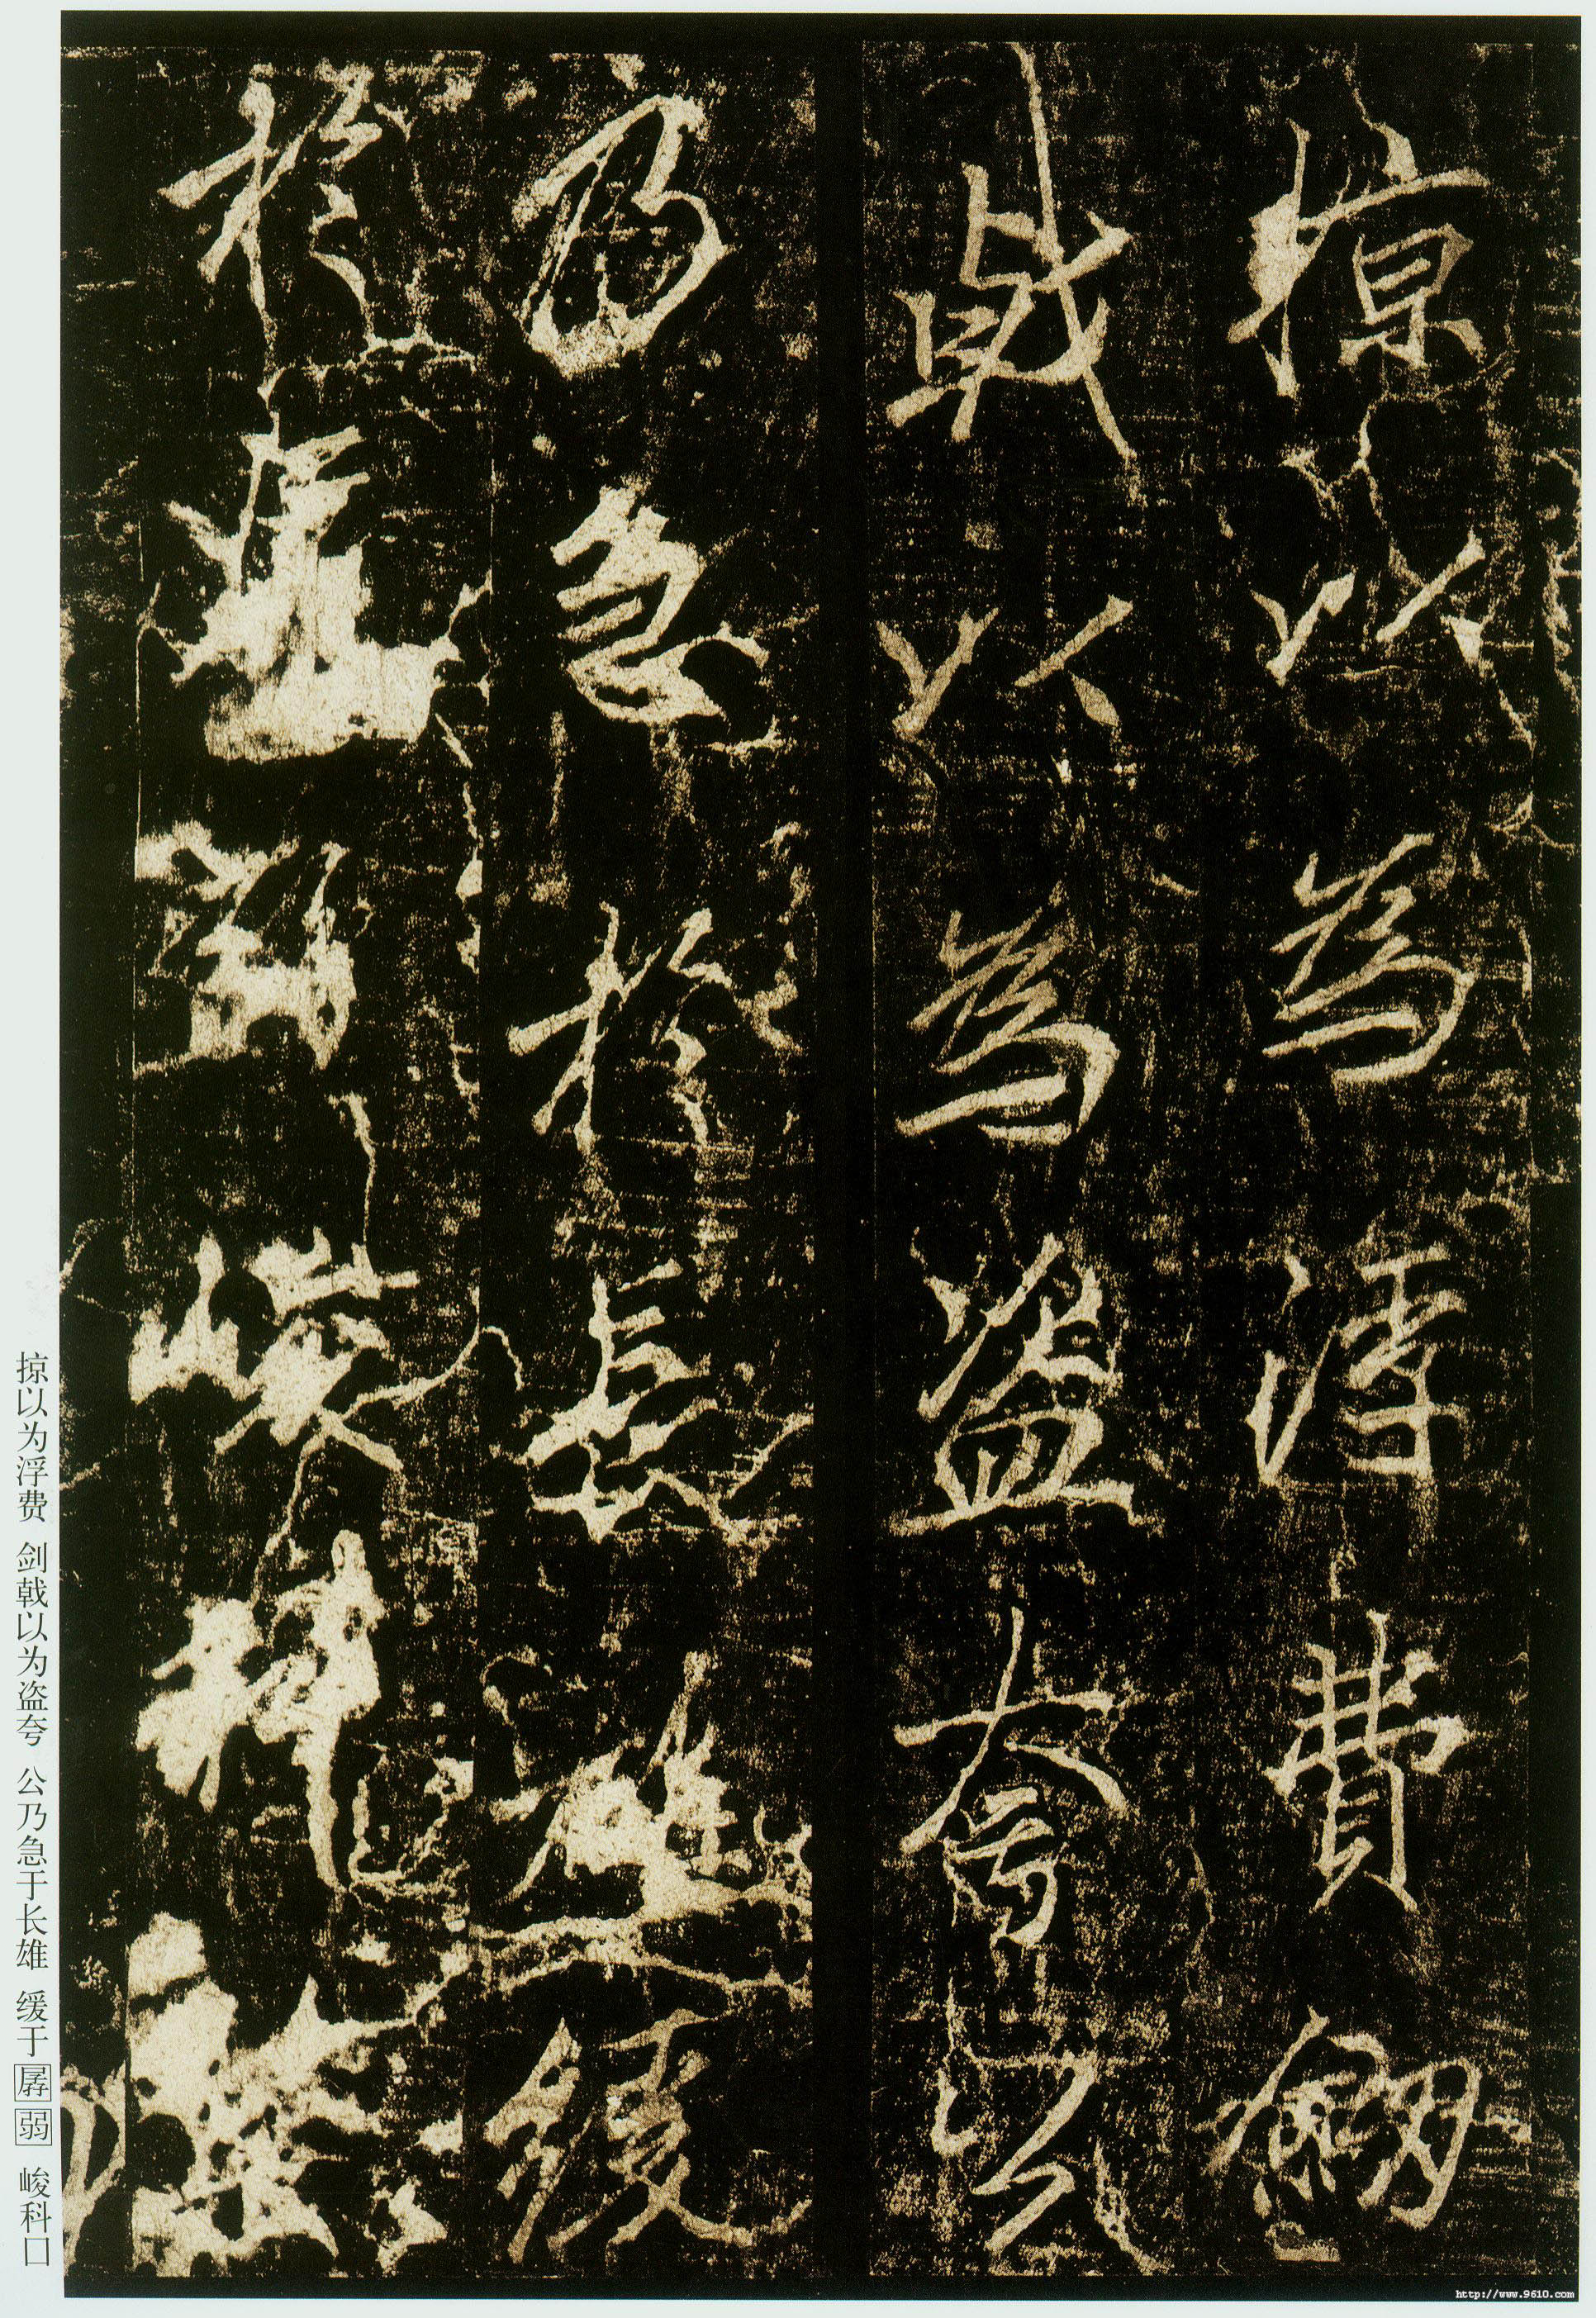 掠以為浮費劒
戟以為盜夸公
乃急於長雄緩
於孱弱峻科
掠以为浮费 剑戟以为盗夸 公乃急于长雄 缓于孱弱 峻科口
http://www.9610.com